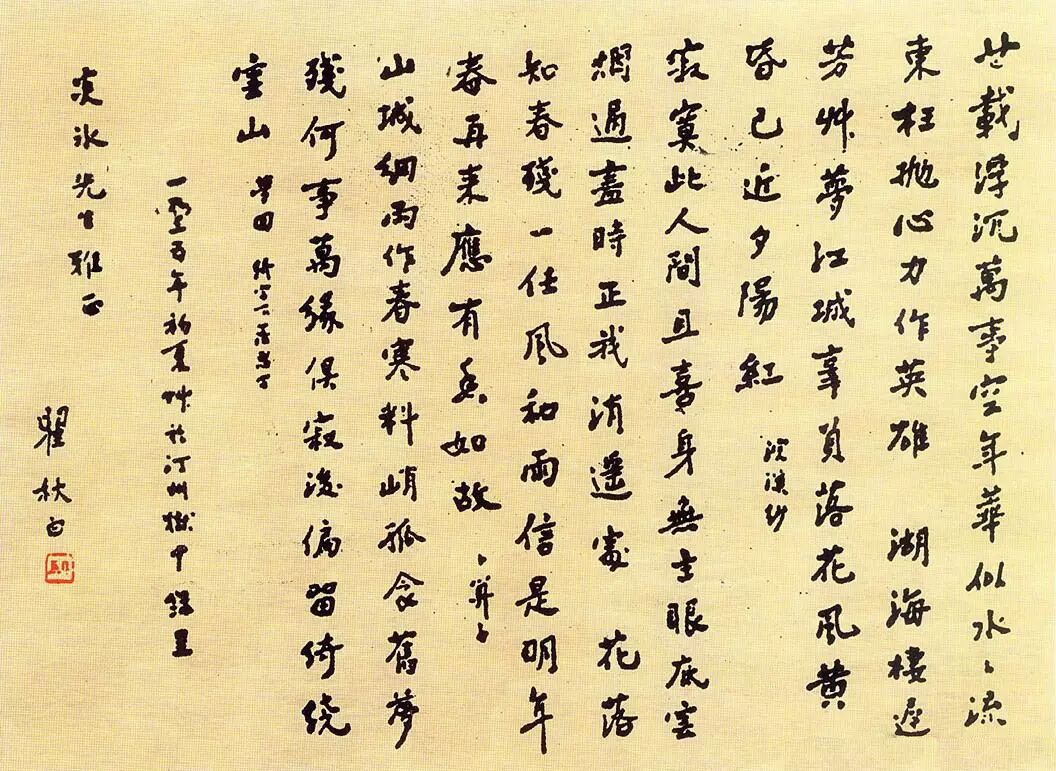 廿載浮沉萬事空年華似水〻流
東枉拋心力作英雄 湖海棲遲
芳艸夢江城辜負落花風黄
昏已近夕陽紅 浣溪紗
寂寞此人間且喜身無主眼底雲
烟過盡時正我逍遥處 花落
知春殘一任風和雨信是明年
春再来應有香如故 卜算子
山城細雨作春寒料峭孤衾舊夢
殘何事萬緣俱寂後偏留綺繞
雲山 夢回
年初夏艸於汀州獄中 錄呈
冰先生雅正
瞿秋白